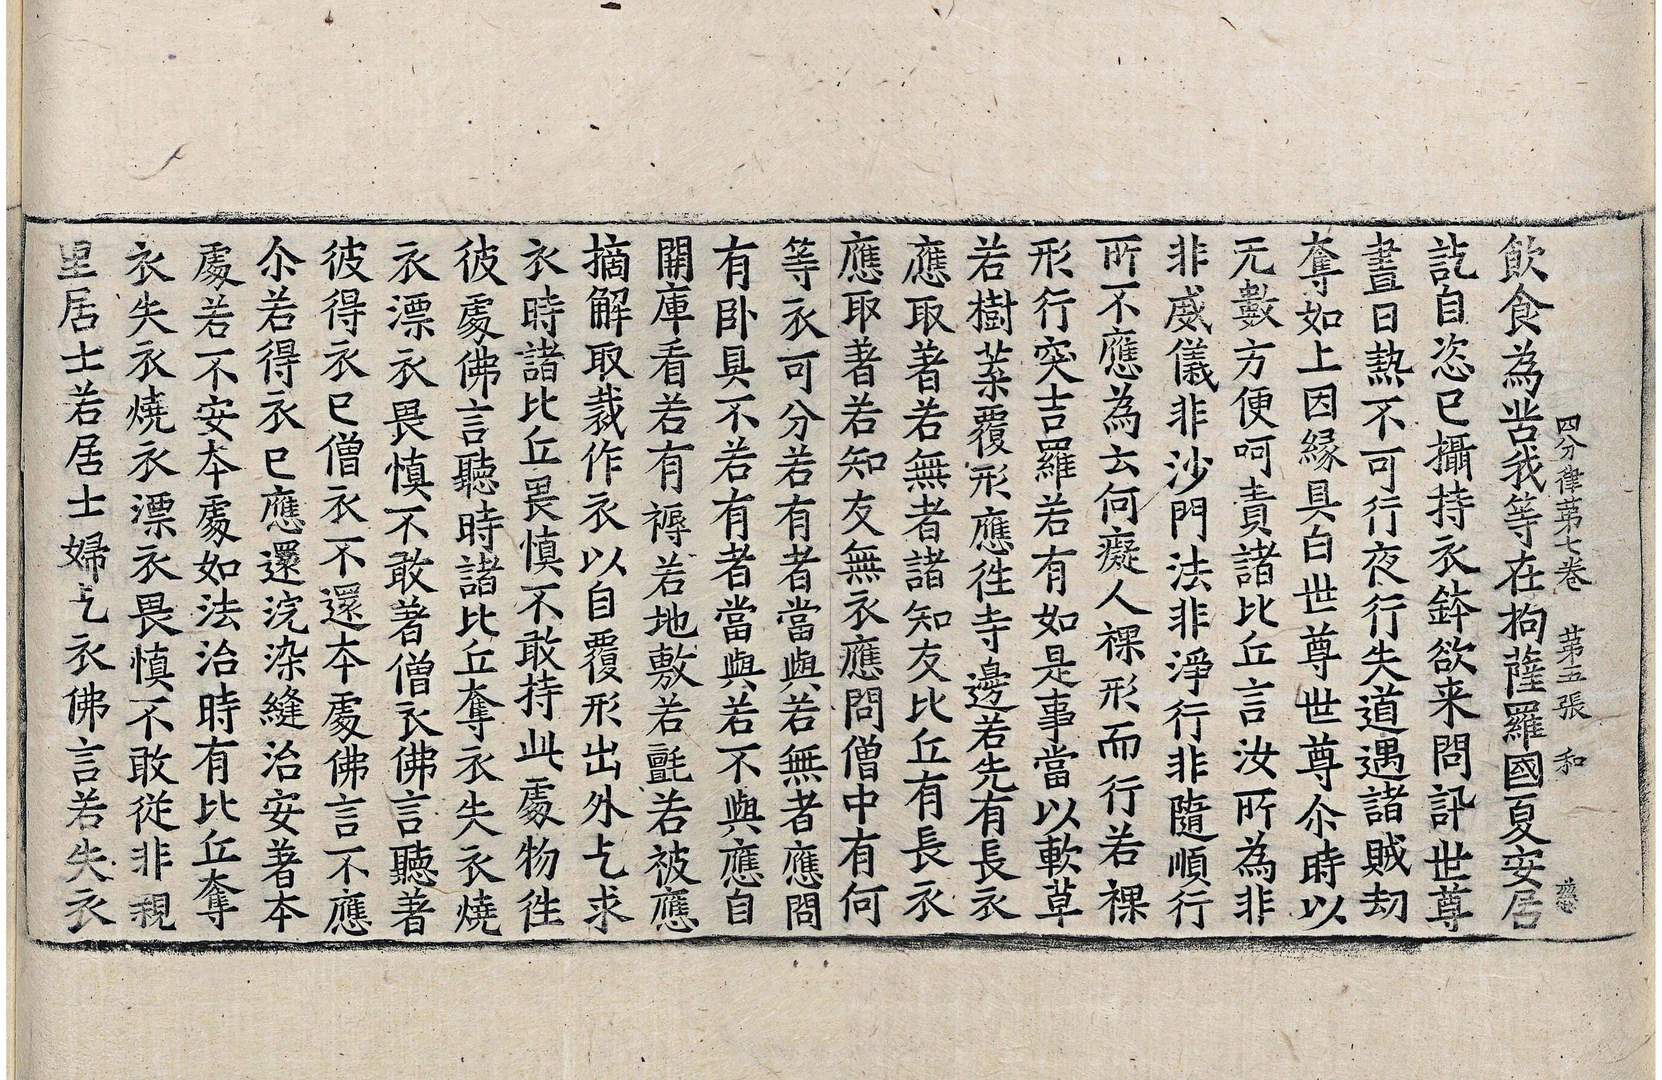 四分律苐七卷　苐五張　和
飲食為苦我等在拘薩羅國夏安居
訖自恣已攝持衣鉢欲来問訊世尊
晝日熱不可行夜行失道遇諸賊劫
奪如上因緣具白世尊世尊尒時以
无數方便呵責諸比丘言汝所為非
非威儀非沙門法非淨行非隨順行
所不應為云何癡人裸形而行若裸
形行突吉羅若有如是事當以軟草
若樹葉覆形應徃寺邊若先有長衣
應取著若無者諸知友比丘有長衣
應取著若知友無衣應問僧中有何
等衣可分若有者當與若無者應問
有卧具不若有者當與若不與應自
開庫看若有褥若地敷若氈若被應
摘解取裁作衣以自覆形出外乞求
衣時諸比丘畏慎不敢持此處物徃
彼處佛言聽時諸比丘奪衣失衣燒
衣漂衣畏慎不敢著僧衣佛言聽著
彼得衣已僧衣不還本處佛言不應
尒若得衣已應還浣染縫治安著本
處若不安本處如法治時有比丘奪
衣失衣燒衣漂衣畏慎不敢從非親
里居士若居士婦乞衣佛言若失衣